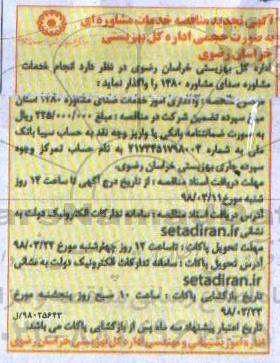 آگهی تجدید مناقصه خدمات مشاوره ای
به صورت حجمی اداره کل بهزیستی
خراسان رضوی
اداره کل بهزیستی خراسان رضوی در نظر دارد انجام خدمات
مشاوره صدای مشاوره ۱۴۸۰ را واگذار نماید :
موضوع مناقصه : راهبری امور خدمات صدای مشاوره ۱۴۸۰ استان
مبلغ سپرده تضمین شرکت در مناقصه : مبلغ ۲۳۵/۰۰۰/۰۰۰ ریال
به صورت ضمانتنامه بانکی یا واریز وجه نقد به حساب سیبا بانک
ملی به شماره ۲۱۷۳۴۵۱۷۹۸۰۰۴ به نام حساب تمرکز وجوه
سپرده جاری بهزیستی خراسان رضوی.
مهلت دریافت اسناد مناقصه : از تاریخ درج آگهی تا ساعت ۱۴ روز
شنبه مورخ ۹۸/۰۳/۱۱
آدرس دریافت اسناد مناقصه : سامانه تدارکات الکترونیک دولت به
نشانی setadiran.ir
مهلت تحویل پاکات : تا ساعت ۱۴ روز چهارشنبه مورخ ۹۸/۰۳/۲۲
آدرس تحویل پاکات : سامانه تدارکات الکترونیک دولت به نشانی
setadiran.ir
تاریخ بازگشایی پاکات : ساعت ۱۰ صبح روز پنجشنبه مورخ
۹۸/۰۳/۲۳
مدت اعتبار پیشنهاد سه ماه پس از بازگشایی پاکات می باشد.
۹۸۰۲۵۶۴۳/ل
اداره امور پشتیبانی و مهندسی اداره کل بهزیستی خراسان رضوی